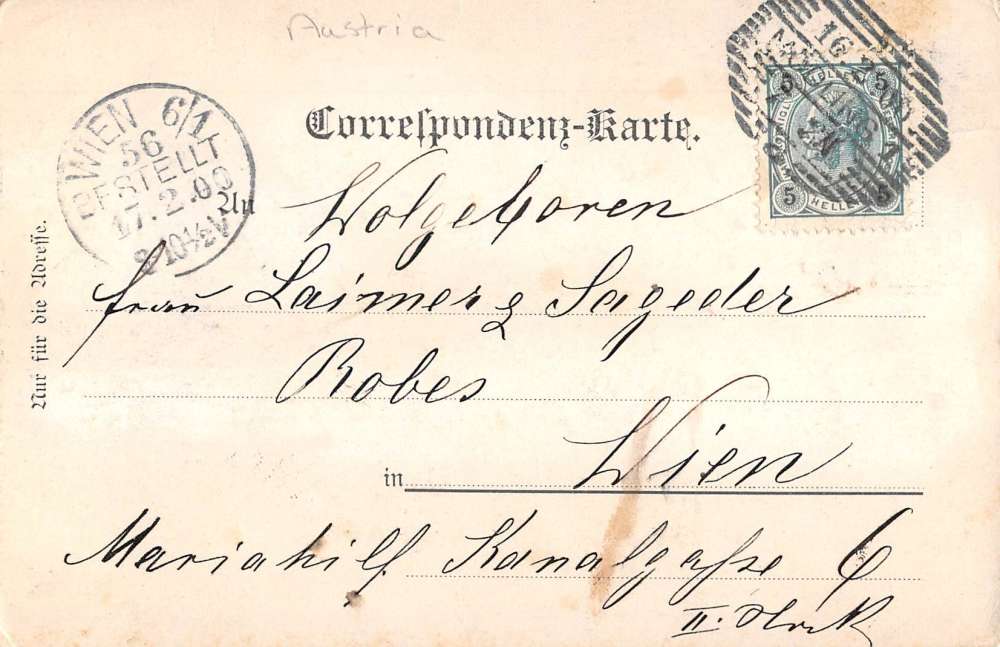 Austria
Correspondenz-Karte.
WIEN 6/1
56
BESTELLT
17.2.00
8-10½V
16
5 HELLER 5
5 HELLER 5
An Wolgeboren
frau Laimer & Sageder
Robes
in Wien
Mariahilf Kanalgaße 6
II. Stock
Nur für die Adresse.